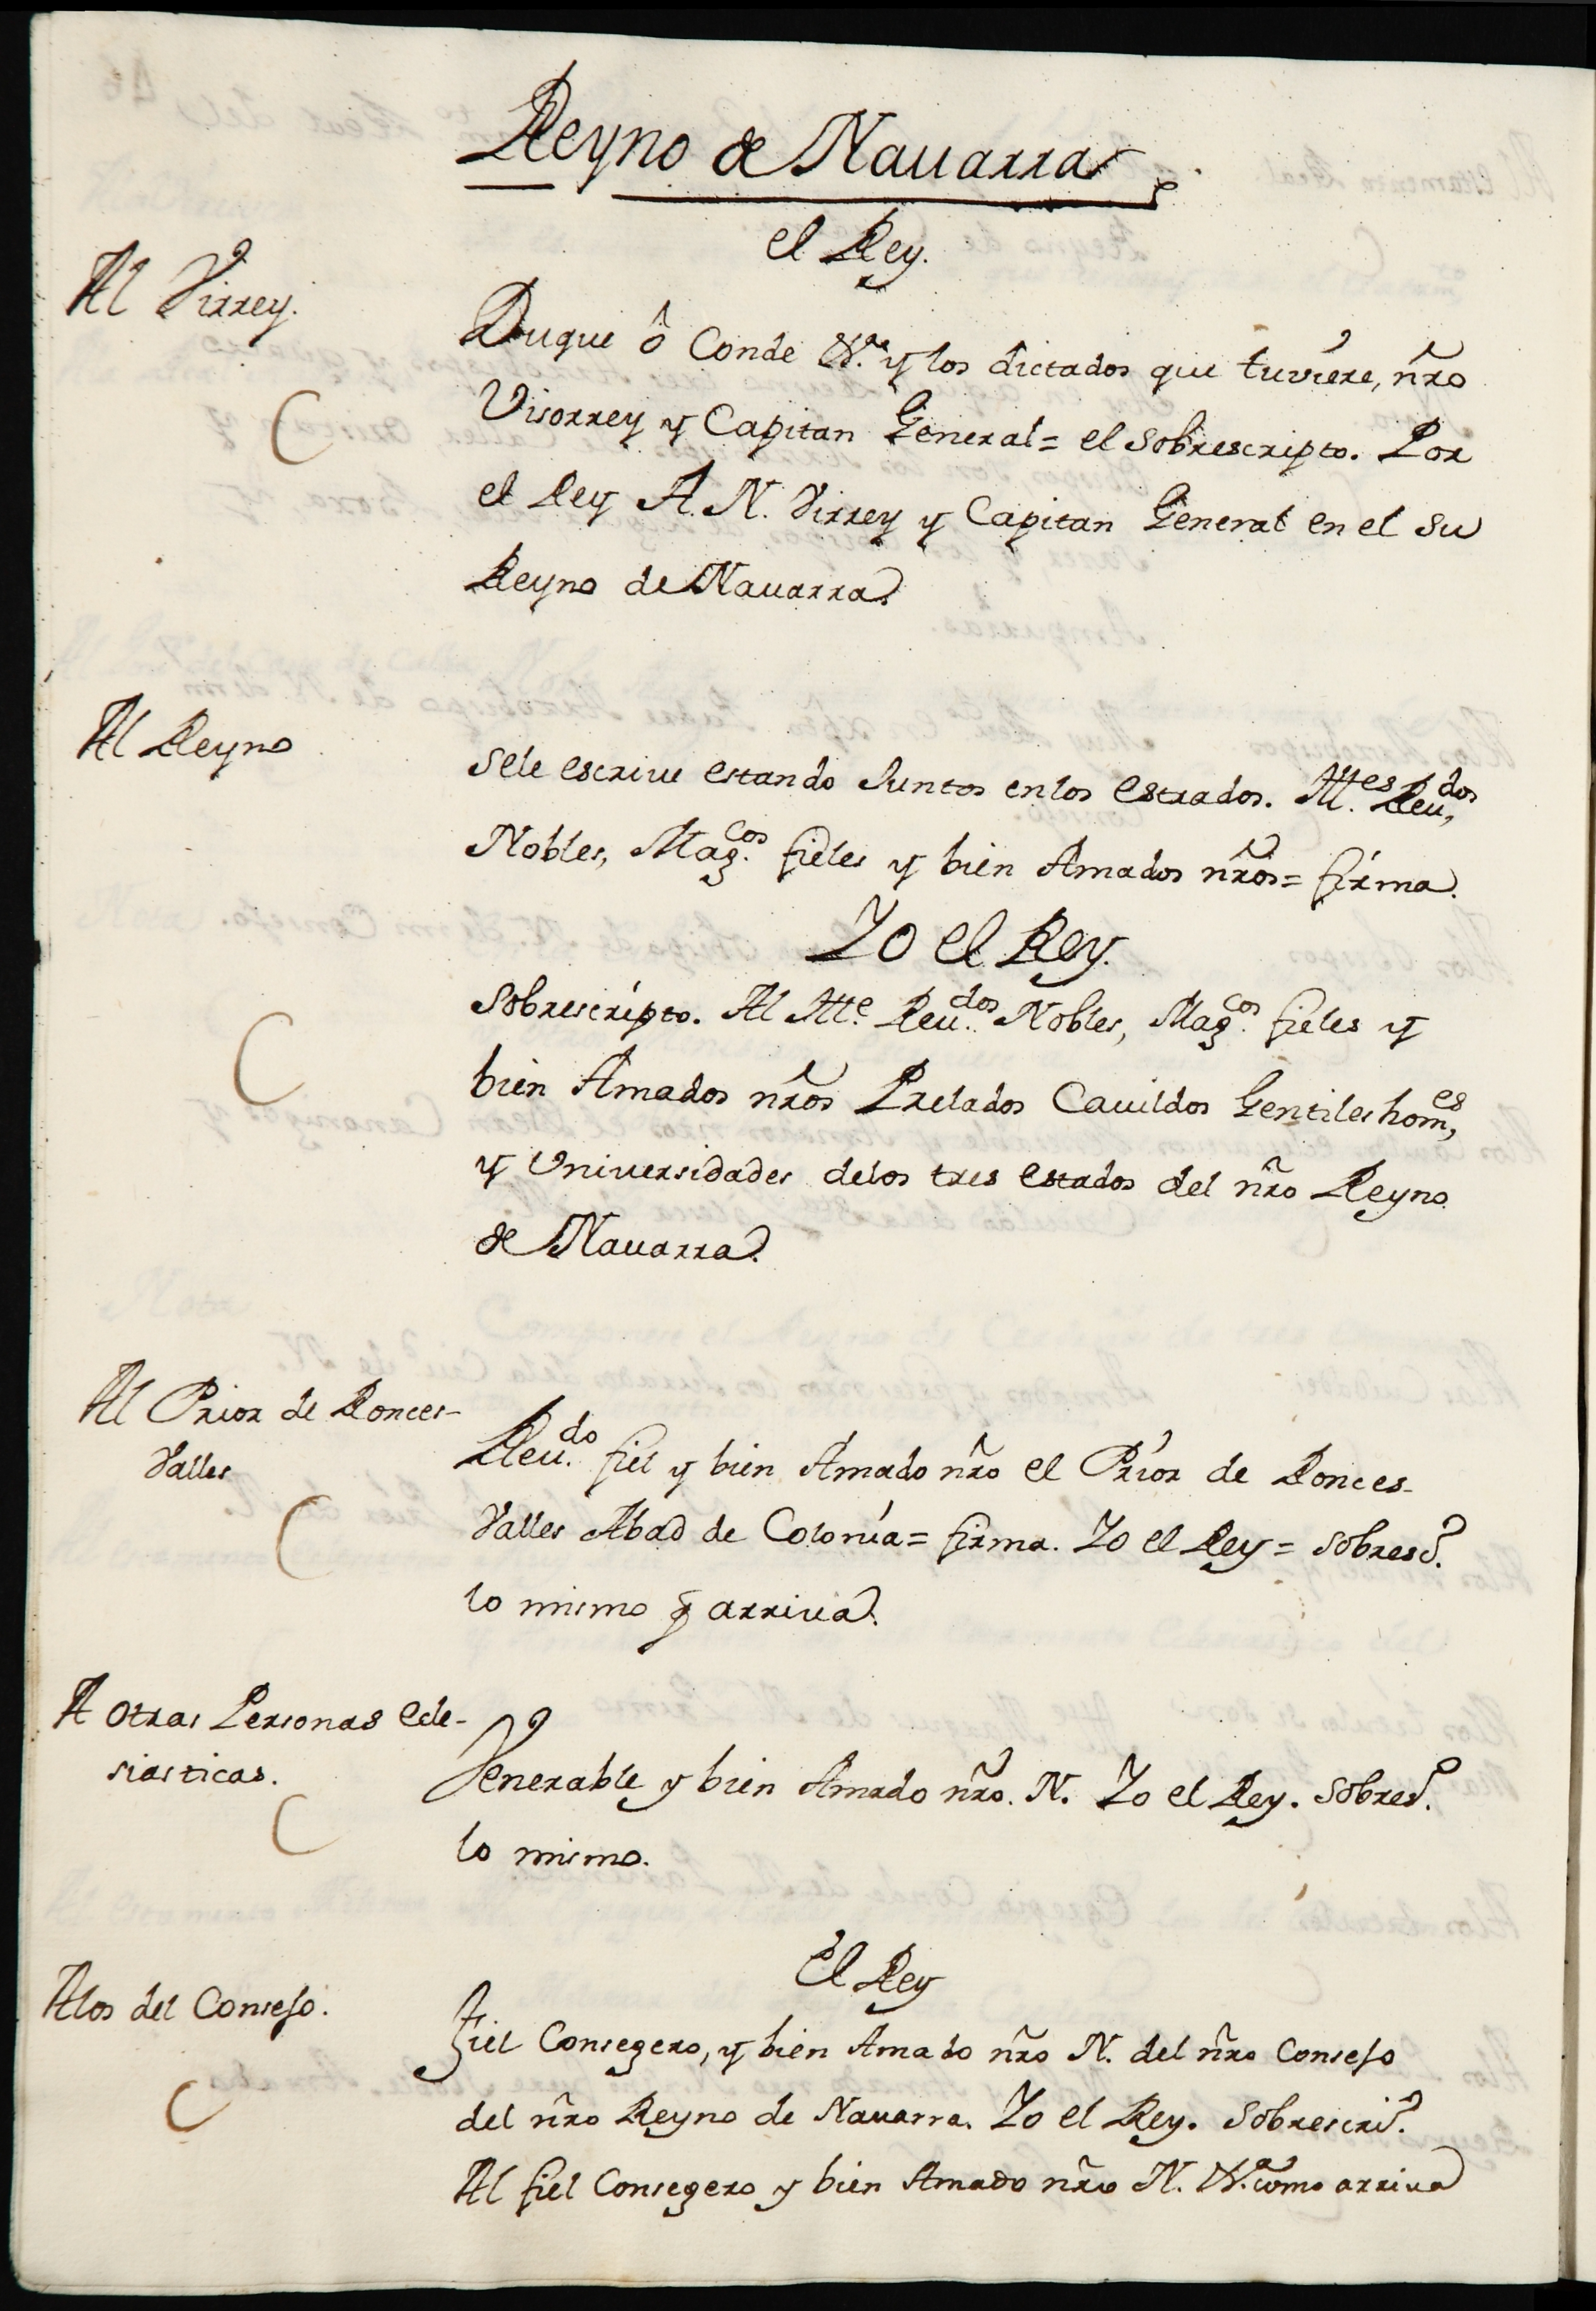 Reyno de Nauarra
el Rey.
Al Virrey.
Duque ô Conde &.ª y los dictados que tuviere, nr̃o
Visorrey y Capitan General = el Sobrescripto. Por
el Rey A. N. Virrey y Capitan General en el su
Reyno de Nauarra.
Al Reyno
Sele escriue estando Juntos enlos Estrados. Ill.es Reu.dos
Nobles, Mag.cos fieles y bien Amados nr̃os = firma.
Yo el Rey.
Sobrescripto. Al Ill.e Reu.dos Nobles, Mag.cos fieles y
bien Amados nr̃os Prelados Cauildos Gentiles hom.es
y Vniuersidades delos tres Estados del nr̃o Reyno
de Nauarra.
Al Prior de Ronces-
Valles
Reu.do fiel y bien Amado nr̃o el Prior de Ronces-
Valles Abad de Colonia = firma. Yo el Rey = Sobresc.º
lo mismo q̃ arriua.
A otras Personas ecle-
siasticas.
Venerable y bien Amado nr̃o. N. Yo el Rey. Sobresc.º
lo mismo.
El Rey
Alos del Consejo.
Fiel Consegero, y bien Amado nr̃o N. del nr̃o Consejo
del nr̃o Reyno de Nauarra. Yo el Rey. Sobrescri.º
Al fiel Consegero y bien Amado nr̃o N. &.ª como arriua